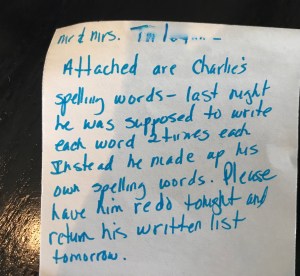 mr & mrs.
Attached are Charlie's
spelling words - last night
he was supposed to write
each word 2 times each
Instead he made up his
own spelling words. Please
have him redo tonight and
return his written list
tomorrow.